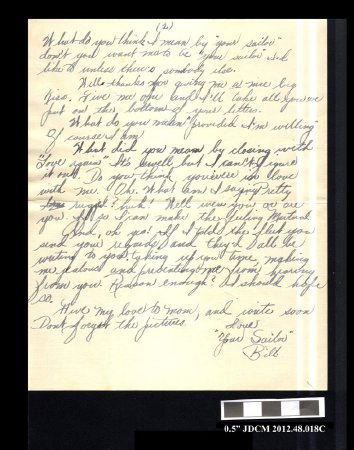 (2)
What do you think I mean by "your sailor"
don't you want me to be "your sailor" I'd
like to unless there's somebody else.
Well thanks for giving me a nice big
kiss. Give me one and I'll take all you've
put on the bottom of your letters.
What do you mean "provided I'm willing"
Of course I am
What did you mean by closing with
"Love again" It's swell but I can't figure
it out. Do you think you were in love
with me. Oh. What am I saying
huh! Well were you or are
you. If so I can make the feeling Mutual
Glad, oh yes! If I told the fellas you
send your regards and they'd all be
writing to you, taking up your time, making
me jealous and preventing me from hearing
from you. Reason enough? I should hope
so.
Give my love to mom, and write soon
Don't forget the pictures.
Love
"Your Sailor"
Bill
0.5" JDCM 2012.48.018C